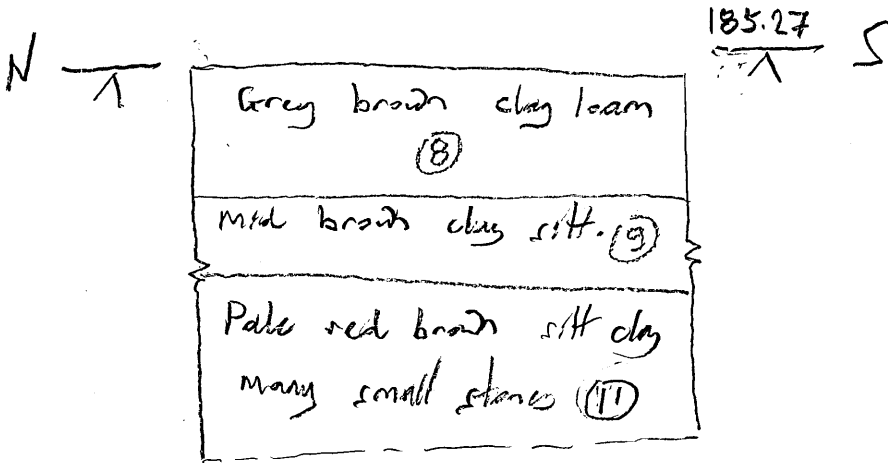 N 185.27 S
Grey brown clay loam
8
Mid brown clay silt. 9
Pale red brown silt clay
many small stones 11